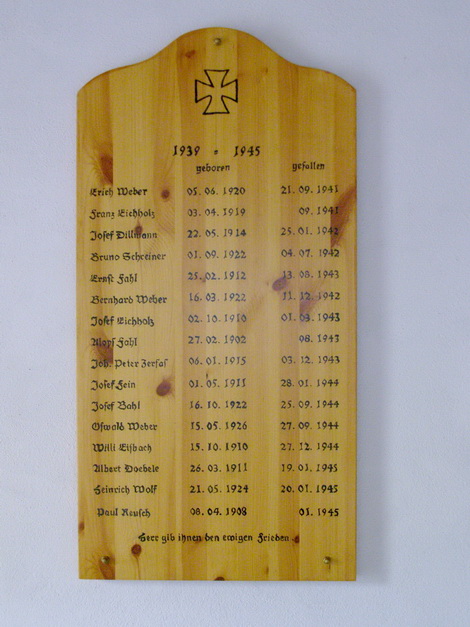 1939 = 1945
geboren gefallen
Erich Weber 05. 06. 1920 21. 09. 1941
Franz Eichholz 03. 04. 1919 09. 1941
Josef Dillmann 22. 05. 1914 25. 01. 1942
Bruno Schreiner 01. 09. 1922 04. 07. 1942
Ernst Fahl 25. 02. 1912 13. 08. 1943
Bernhard Weber 16. 03. 1922 11. 12. 1942
Josef Eichholz 02. 10. 1910 01. 03. 1943
Aloys Fahl 27. 02. 1902 08. 1943
Joh. Peter Zersas 06. 01. 1915 03. 12. 1943
Josef Hein 01. 05. 1911 28. 01. 1944
Josef Bahl 16. 10. 1922 25. 09. 1944
Oswald Weber 15. 05. 1926 27. 09. 1944
Willi Eisbach 15. 10. 1910 27. 12. 1944
Albert 26. 03. 1911 19. 01. 1945
Heinrich Wolf 21. 05. 1924 20. 01. 1945
Paul Reusch 08. 04. 1908 01. 1945
Herr gib ihnen den ewigen Frieden